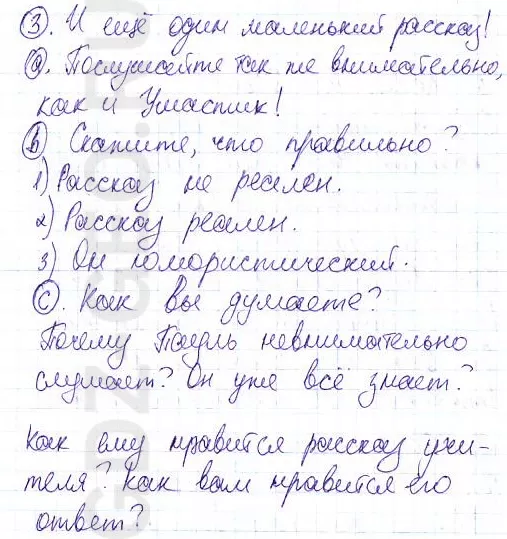 3. И ещё один маленький рассказ!
a. Послушайте так же внимательно,
как и Умастик!
b Скажите, что правильно?
1) Рассказ не реален.
2) Рассказ реален.
3) Он юмористический.
c. Как вы думаете?
Почему Пауль невнимательно
слушает? Он уже всё знает?
Как ему нравится рассказ учи-
теля? Как вам нравится его
ответ?